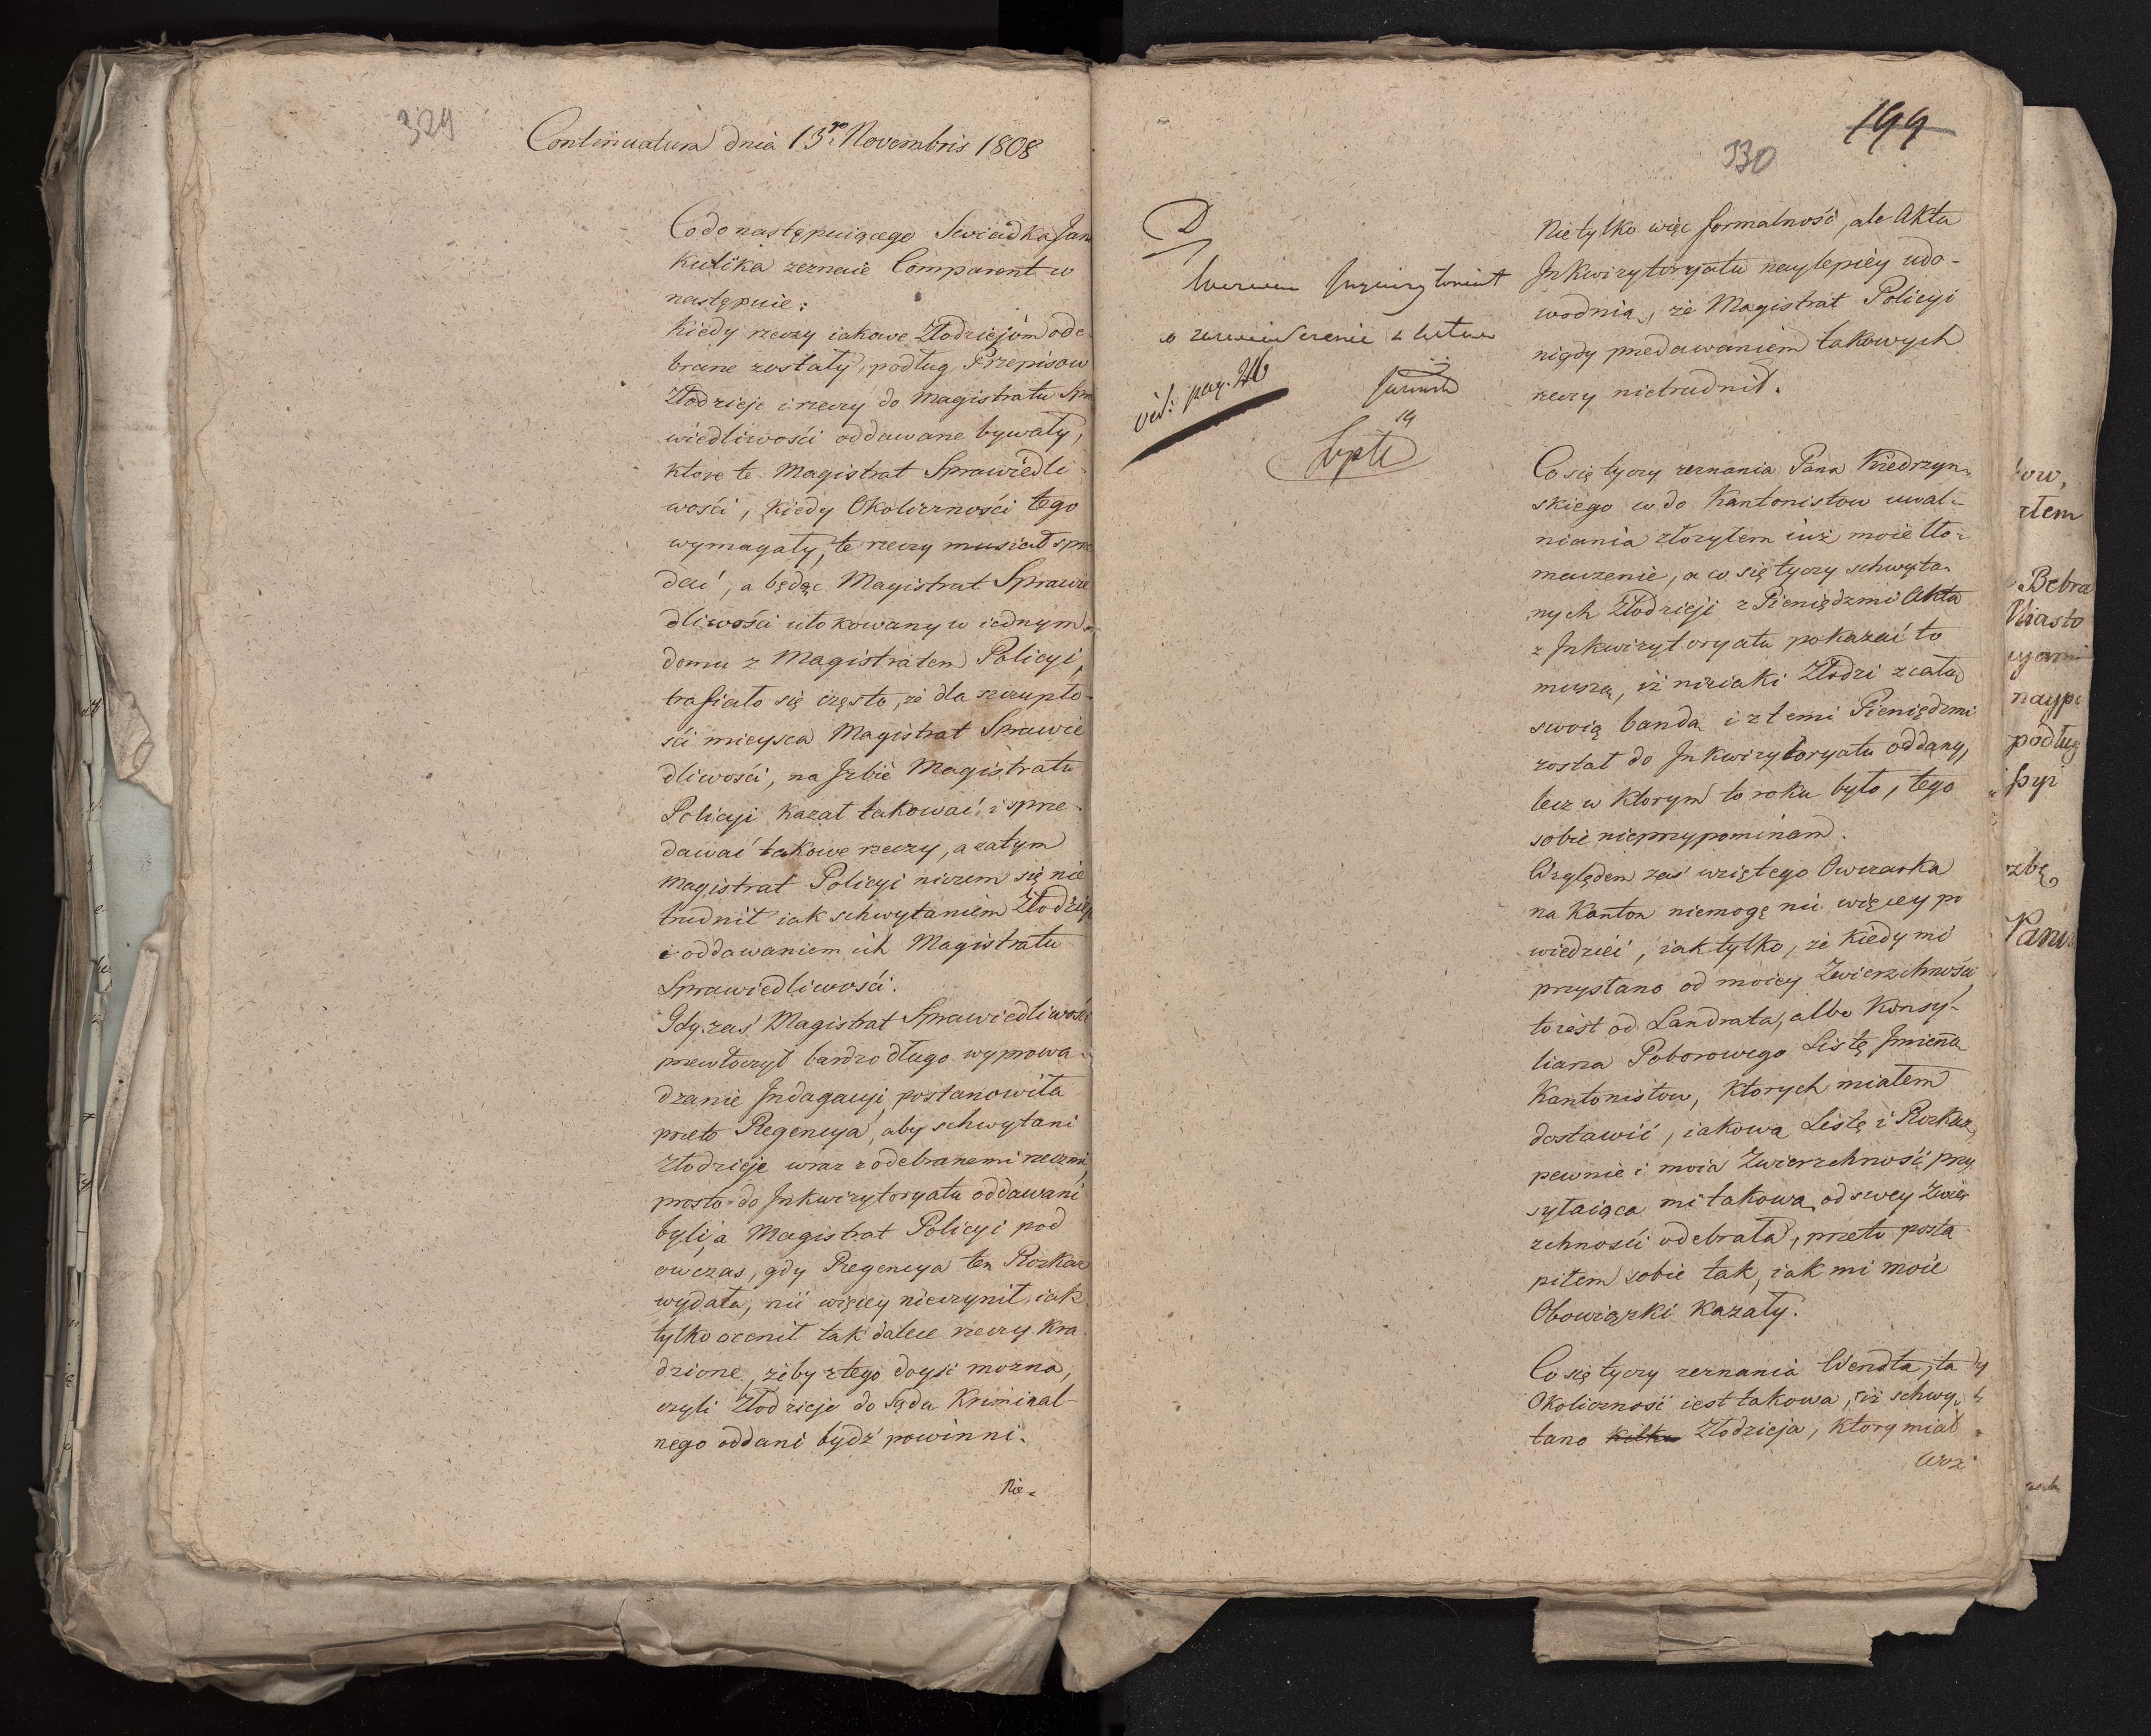 329
Continuatum dnia 13go Novembris 1808
Co do następuiącego Swiadka Jana
Kulika zeznaie Comparent w
następuie:
Kiedy rzeczy iakowe Złodziejóm ode-
brane zostały, podług Przepisow
Złodzieje i rzeczy do Magistratu Spra
wiedliwości oddawane bywały,
ktore te Magistrat Sprawiedli
wości, kiedy Okoliczności tego
wymagały, te rzeczy musiał sprze
dać, a będąc Magistrat Sprawie
dliwości ulokowany w iednym
domu z Magistratem Policyi,
trafiało się często, że dla szczupło-
ści mieysca Magistrat Sprawie
dliwości, na Izbie Magistratu
Policyi kazał takować i sprze-
dawać takowe rzeczy, a zatym
Magistrat Policyi niczem się nie
trudnił iak schwytaniem Złodziei
i oddawaniem ich Magistratu
Sprawiedliwości.
Gdy zaś Magistrat Sprawiedliwości
przewłoczył bardzo długo wyprowa-
dzanie Indagacyi, postanowiła
przeto Regencya, aby schwytani
Złodzieje wraz z odebranemi rzeczmi,
prosto do Inkwizytoryatu oddawani
byli, a Magistrat Policyi pod
owczas, gdy Regencya ten Rozkaz
wydała, nic więcey nieczynił, iak
tylko ocenił tak dalece rzeczy kra
dzione, żeby z tego doyść mozna,
czyli Złodzieje do Sądu Kriminal-
nego oddani bydź powinni.
Nie-
199
330
D
vid: pag. 26
Nie tylko więc formalność, ale Akta
Inkwizytoryatu naylepiey udo-
wodnią, że Magistrat Policyi
nigdy przedawaniem takowych
rzeczy nietrudnił.
Co się tyczy zeznania Pana Kiedrzyn-
skiego w do Kantonistow uwal-
niania złozyłem iuż moie tło-
maczenie, a co się tyczy schwyta-
nych Złodzieji z Pieniędzmi Akta
z Inkwizytoryatu pokazać to
muszą, iż niziaki Złodzi z całą
swoią bandą i z temi Pieniędzmi
został do Inkwizytoryatu oddany,
lecz w ktorym to roku było, tego
sobie nieprzypominam.
Względem zaś wziętego Owczarka
na Kanton niemogę nic więcey po
wiedzieć, iak tylko, że kiedy mi
przysłano od moiey Zwierzchności
to iest od Landrata, albo Konsy-
liarza Poborowego Listę Jmienną
Kantonistow, ktorych miałem
dostawić, iakową Listę i Rozkaz
pewnie i moia Zwierzchność przy
syłaiąca mi takową od swey Zwier
zchności odebrała, przeto postą
piłem sobie tak, iak mi moie
Obowiązki kazały.
Co się tyczy zeznania Wendta, ta
Okoliczność iest takowa, iż schwy-
tano kilku Złodzieja, ktory miał
ow,
złem
Bebra
Miasto
naype
podług
zbę